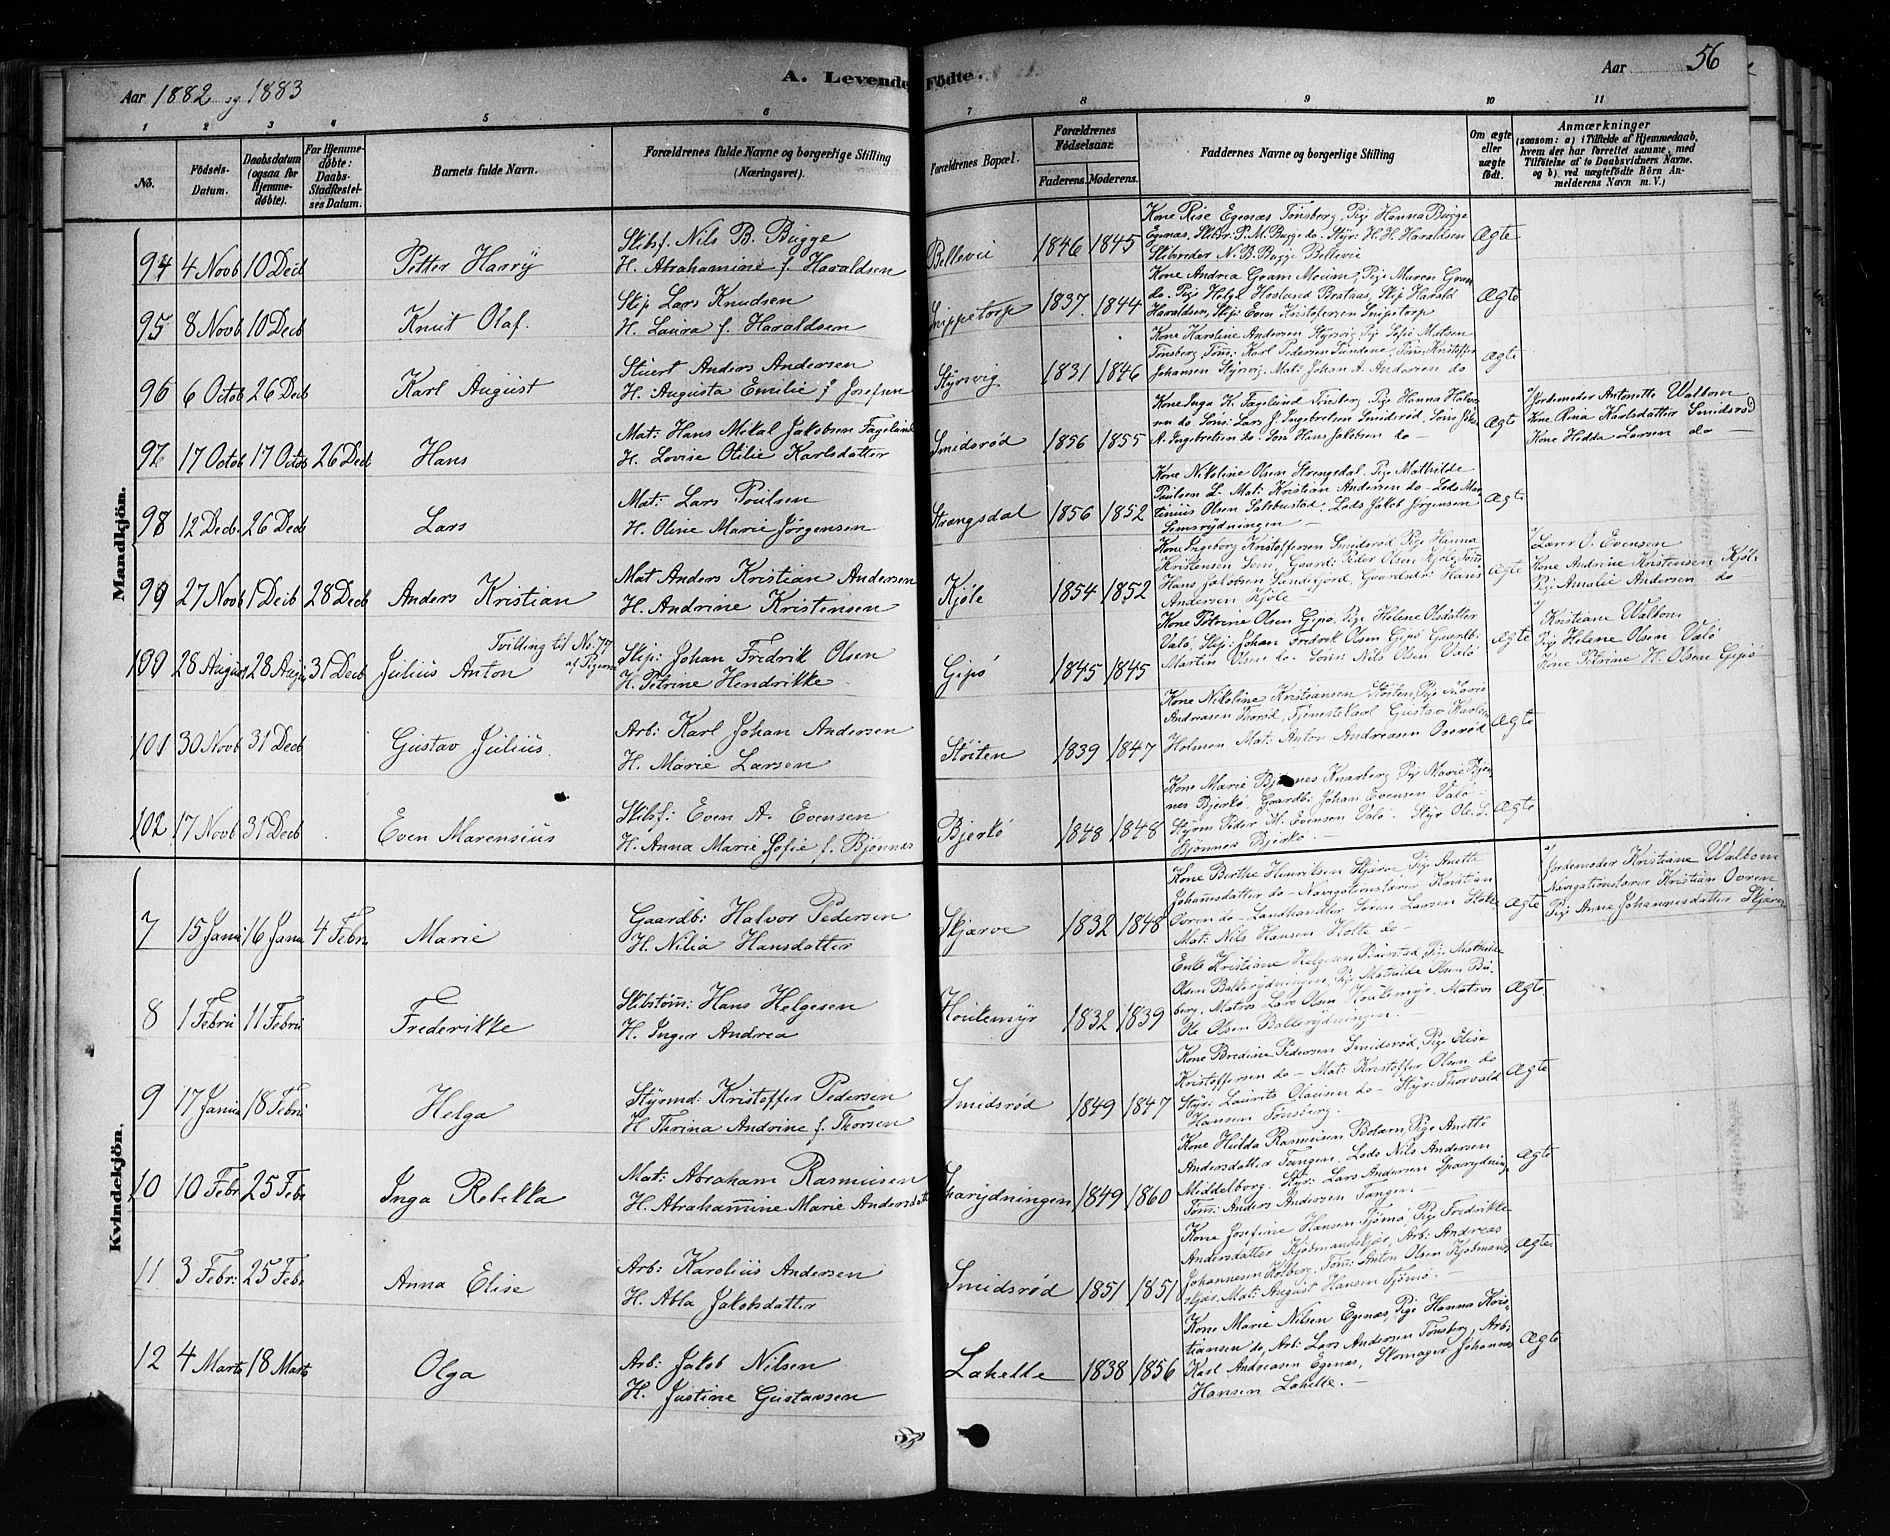 Aar 1882 og 1883
A. Levende Fødte.
Aar 56
1 2 3 4 5 6 7 8 9 10 11
No.
Fødsels-Datum.
Daabsdatum (ogsaa for Hjemmedøbte).
For Hjemmedøbte: Daabs-Stadfæstelses Datum.
Barnets fulde Navn.
Forældrenes fulde Navne og borgerlige Stilling (Næringsvei).
Forældrenes Bopæl.
Forældrenes Fødselsaar.
Faderens. Moderens.
Faddernes Navne og borgerlige Stilling
Om ægte eller uægte født.
Anmærkninger
(saasom: a) i Tilfælde af Hjemmedaab, hvem der har forrettet samme, med Tilføielse af to Daabsvidners Navne. og b) ved uægtefødte Børn Anmelderens Navn m. V.)
Mandkjön.
94 4 Novb 10 Decb Petter Harry
Skibsf. Nils B. Bugge
H. Abrahamine f. Haraldsen
Bellevü 1846 1845
Kone Rise Egenæs Tønsberg, Pige Hanna Bugge
Egenæs, Skibsr: P. M. Bugge do, Styr: H. H. Haraldsen
Skibsreder N. B. Bugge Bellevü
Ægte
95 8 Novb 10 Decb Knut Olaf.
Skip Lars Knudsen
H. Laura f. Haraldsen
Snippetorp 1837. 1844
Kone Andrea Gram Meum, Pige Maren Gram
do. Pige Helga Hosland Brataas, Skip Harald
Haraldsen, Skip: Even Kristoffersen Snipetorp
Ægte
96 6 Octob 26 Decb Karl August
Stuert Anders Andersen
H. Augusta Emilie f Josefsen
Styrsvig 1831 1846
Kone Karoline Andersen Styrsvig, Pige Sofie Matsen
Tønsberg, Tøm: Karl Pedersen Sundene, Tøm: Kristoffer
Johansen Styrsvig, Mat: Johan A. Andersen do
Ægte
97 17 Octob 17 Octob 26 Decb Hans
Mat: Hans Mikal Jakobsen Fagelund
H. Lovise Otilie Karlsdatter
Smidsrød 1856 1855
Kone Inga K. Fagelund Tønsberg, Pige Hanna
do Søm: Lars J. Ingebretsen Smidsrød, Søm:
A. Ingebretsen do. Søm Hans Jakobsen do
Ægte
a) Jordemoder Antonette Walbom
Kone Rina Karlsdatter Smidsrød
Kone Hedda Larsen do
98 12 Decb. 26 Decb Lars
Mat: Lars Poulsen
H. Oline Marie Jørgensen
Strangsdal 1856 1852
Kone Nikoline Olsen Strengsdal. Pige Mathilde
Poulsen L. Mat: Kristian Andersen do. Lods Martinius
Olsen Salsbustad. Lods Jakob Jørgensen
Semsrydningen
Ægte
99 27 Novb 1 Decb 28 Decb Anders Kristian
Mat Anders Kristian Andersen
H. Andrine Kristensen
Kjøle 1854 1852
Kone Ingeborg Kristoffersen Smidsrød Pige Hanna
Kristensen Sem, Gaard: Peder Olsen Kjøle, Tøm:
Hans Jakobsen Sandefjord, Gaardmdr: Hans
Andersen Kjøle
Ægte
a) Lærer O. Evensen
Kone Andrine Kristensen Kjøle
Pige Amalie Andersen do
100 28 August 28 Augu 31 Decb Julius Anton
Tvilling til No: 77 af Pigerne
Skip: Johan Fredrik Olsen
H. Petrine Hendrikke
Gipø 1845 1845
Kone Petrine Olsen Gipø, Pige Helene Olsdatter
Valø, Skip: Johan Fredrik Olsen Gipø Gaardb:
Martin Olsen do. Søm: Nils Olsen Valø
Ægte
a) Kristiane Walbom
Pige Helene Olsen Valø
Kone Petrine H. Olsen Gipø
101 30 Novb 31 Decb Gustav Julius
Arb: Karl Johan Andersen
H. Marie Larsen
Støiten 1839 1847
Kone Nikoline Kristiansen Støiten, Pige Marie
Andreasen Thorød, Tjenestekarl Gustav Karlsen
Holmen Mat: Anton Andreasen Oserød
Ægte
102 17 Novb 31 Decb Even Marensius
Skibsf: Even A. Evensen
H. Anna Marie Sofie f. Bjønnes
Bjerkø 1848 1848
Kone Marie Bjønnes Knarberg Pige Marie Bjønnes
Bjerkø, Gaardb: Johan Evensen Valø.
Styrm Peder M. Evensen Valø. Styr Ole S.
Bjønnes Bjerkø.
Ægte
Kvindekjön.
7 15 Janu 16 Janu 4 Febru Marie
Gaardb: Halvor Pedersen
H. Nilia Hansdatter
Skjærve 1832 1848
Kone Berthe Henriksen Skjærve, Pige Anette
Johannesdatter do. Navigationslærer Kristian
Ooren do. Landhandler Søren Larsen Holte
Mat: Nils Hansen Holte do
Ægte
a) Jordemoder Kristiane Walbom
Navigationslærer Kristian Ooren
Pige Anne Johannesdatter Skjærve
8 1 Febru 11 Febru Frederikke
Skibstøm: Hans Helgesen
H. Inger Andrea
Houkemyr 1832 1839
Enke Kristiane Helgesen Buerstad, Pige Mathilde
Olsen Bakkerydningen, Pige Mathilde Olsen
berg, Matros Lars Olsen Houkemyr, Matros
Ole Olsen Bakkerydningen.
Ægte.
9 17 Janua 18 Febru Helga
Styrmd: Kristoffer Pedersen
H Thrina Andrine f. Thorsen
Smidsrød 1849 1847
Kone Bredine Pedersen Smidsrød, Pige Elise
Kristoffersen do. Mat: Kristoffer Olsen do
Styr: Laurits Olausen do. Styr: Thorvald
Hansen Tønsberg.
Ægte
10 10 Febr 25 Febr Inga Rebekka
Mat: Abraham Rasmusen
H. Abrahamine Marie Andersdatt
Sparydningen 1849 1860
Kone Hulda Rasmusen Bolærn, Pige Anette
Andersdatter Tangen, Lods Nils Andersen
Middelborg. Styr: Lars Andersen Sparydning
Tøm: Anders Andersen Tangen.
Ægte
11 3 Febr: 25 Febr Anna Elise
Arb: Karolius Andersen
H. Abla Jakobsdatter
Smidsrød 1851 1851
Kone Josefine Hansen Tjømø, Pige Fredrikke
Andersdatter Kjøbmandskjær, Arb: Andreas
Johannesen Kolberg, Tøm: Anton Olsen Kjøbmandskjær,
Mat: August Hansen Tjømø.
Ægte
12 4 Marts 18 Marts Olga
Arb: Jakob Nilsen
H. Justine Gustavsen
Lahelle 1838 1856
Kone Marie Nilsen Egenæs, Pige Hanna Kristiansen
do, Arb: Lars Andersen Tønsberg, Arb:
Karl Andreasen Egenæs, Skomager Johannes
Hansen Lahelle.
Ægte